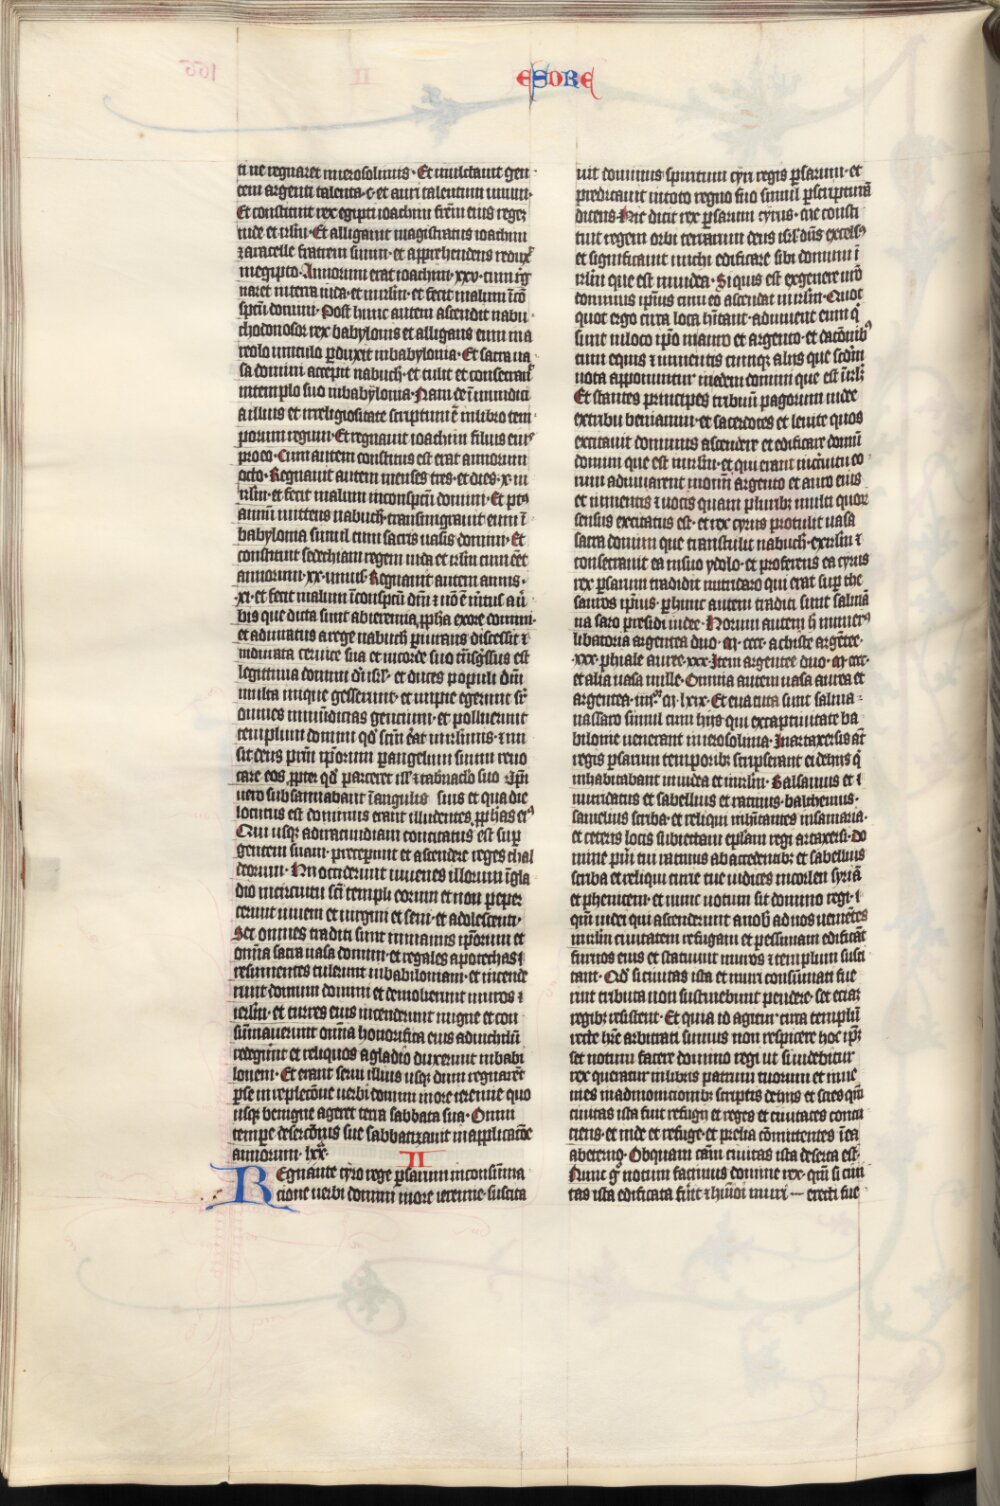 ESDRE
ti ne regnaret iherosolimis · Et mulctavit gen
tem argenti talenta · c · et auri talentum unum ·
Et constituit rex egipti ioachim frēm eius regeʒ
iude et irłm · Et alligavit magistratus ioachim
⁊ zaracelle fratrem suum · et apprehendens reduxͭ
in egipto · Annorum erat ioachim · xxv · cum rͤg
naret in terra iuda · et in irłm · et fecit malum ī cō
spectu domini · Post hunc autem ascendit nabu
chodonosor rex babylonis et alligans eum in e
reo vinculo ꝑduxit in babylonia · Et sacra va
sa domini accepit nabuch · et tulit et consecravͭ
in templo suo in babylonia · Nam de īmundici
a illius et irreligiositate scriptum ē in libro tem
porum regum · Et regnavit ioachim filius eiꝰ
pro eo · Cum autem constitutus est erat annorum
octo · Regnavit autem menses tres · et dies · x · in
irłm · et fecit malum in conspectu domini · Et post
annū mittens nabuch · transmigravit eum ī
babylonia simul cum sacris vasis domini · Et
constituit sedechiam regem iuda et irłm cum eēt
annorum · xx · unius · Regnavit autem annis ·
· xi · et fecit malum ī conspectu dm̄i ⁊ nō ē veritus a ū
bis que dicta sunt a bieremia ꝓpha ex ore domini ·
et adiuratus a rege nabuch ꝑiurans discessit ⁊
indurata cervice sua et in corde suo tn̄sgressus est
legittima domini dei isrł · et duces populi dn̄i
multa inique gesserunt · et impie egerunt sr̄
omnes immūdicias gentium · et polluerunt
templum domini qđ scm̄ erat in irłimis · ⁊ mi
sit deus prm̄ ipsorum ꝑ angelum suum revo
care eos ꝓpter qđ parceret ill̄ ⁊ tabnaclo suo · Ipi
vero subsannabant ī angulis suis et qua die
locutus est dominus erant illudentes ꝓphas eiꝰ
Qui usqꝫ ad iracundiam concitatus est suꝑ
gentem suam · preceperunt et ascendere reges chal
deorum · hii occiderunt iuvenes illorum ī gla
dio in circuitu sci templi eorum et non peper
cerunt iuveni et virgini et seni · et adolescenti ·
Set omnes traditi sunt in manus ipsorum et
omnia sacra vasa domini · et regales apothecas ⁊
resumentes tulerunt in babiloniam · et incende
runt domum domini et demolierunt muros ⁊
ierłm · et turres eius incenderunt in igne et con
sūmaverunt omnia honorifica eius ad nichilū
redegerunt et reliquos a gladio duxerunt in babi
lonem · Et erant servi illius usqꝫ dum regnarēt
perse in repletione verbi domini in ore ieremie quo
usqꝫ benigne ageret terra sabbata sua · Omni
tempe desertōnis sue sabbatizavit in applicatōe
annorum · lxx ·
II
Regnante cyro rege ꝑsarum in consūma
cione verbi domini in ore ieremie · suscita
vit dominus spiritum cyri regis ꝑsarum · et
predicavit in toto regno suo simul ꝑ scripturā
dicens · Hec dicit rex ꝑsarum cyrus · me consti
tuit regem orbi terrarum deus isrł dn̄s excelsꝰ
et significavit michi edificare sibi domum ī
irłm que est in iudea · Si quis est ex genere vro
dominus ipsius cum eo ascendat in irłm · Quot
quot ergo circa loca hītant · adiuvent eum q̄
sunt in loco ipso in auro et argento · et dacōnibꝰ
cum equis ⁊ iumentis cumqꝫ aliis que scdm̄
vota apponuntur in edem domini que est ī irłꝫ
Et stantes principes tribuū pagorum iude
ex tribu beniamin · et sacerdotes et levite quos
excitavit dominus ascendere et edificare domū
domini que est in irłm · et qui erant in circuitu eo
rum adiuvarent in omī argento et auro eius
et iumentis ⁊ votis quam pluribꝫ multi quor
sensus excitatus est · et rex cyrus protulit vasa
sacra domini que transtulit nabuch · ex irłm ⁊
consecravit ea in suo ydolo · et proferens ea cyrus
rex ꝑsarum tradidit mitridaro qui erat suꝑ the
sauros ipsius · ꝑ hunc autem traditi sunt salma
na saro presidi iudee · Horum autem h̄ numerꝰ
libatoria argentea duo · m̄ · cccc · aciste argētee ·
· xxx · phiale auree · xxx · Item argentee duo · m̄ · cccc ·
et alia vasa mille · Omnia autem vasa aurea et
argentea · v · m̄ · cccc · lxix · Et enata sunt salma-
nassaro simul cum hiis qui ex captivitate ba
bilonie venerant in ierosolima · In artaxersis aūt
regis ꝑsarum temporibꝫ scripserunt ei de hiis q̄
inhabitabant in iudea et in irłm · Balsamus et ⁊
mitridatus et sabellius et ratimus · balthemus ·
samelius scriba · et reliqui inhītantes in samaria ·
et ceteris locis subiectam epłam regi artaxersi · Do
mine pueri tui ratimus ab accedentibꝫ et sabellius
scriba et reliqui curie tue iudices in coelen syriā
et phenicem · et nunc notum sit domino regi ·
qm̄ iudei qui ascenderunt a nob̄ ad nos venientes
in irłm civitatem refugam et pessimam edificāt
furnos eius et statuunt muros ⁊ templum susci
tant · Qđ si civitas ista et muri consūmati fue
rint tributa non sustinebunt pendere · set eciaꝫ
regibꝫ resistent · Et quia id agitur circa templū
recte hr̄e arbitrati sumus non respicere hoc ip̄ꝫ
set notum facere domino regi ut si videbitur
rex queratur in libris patrum tuorum et inve
nies in admonicionibꝫ scriptis de hiis et scies qm̄
civitas ista fuit refuga et reges et civitates concu
ciens · et iude et refuge · et prelia cōmittentes ī ea
ab eterno · Ob quam cām civitas ista deserta est ·
Nunc gͦ notum facimus domine rex · qm̄ si civi
tas ista edificata fūit ⁊ huiꝰmoi muri — erecti fue